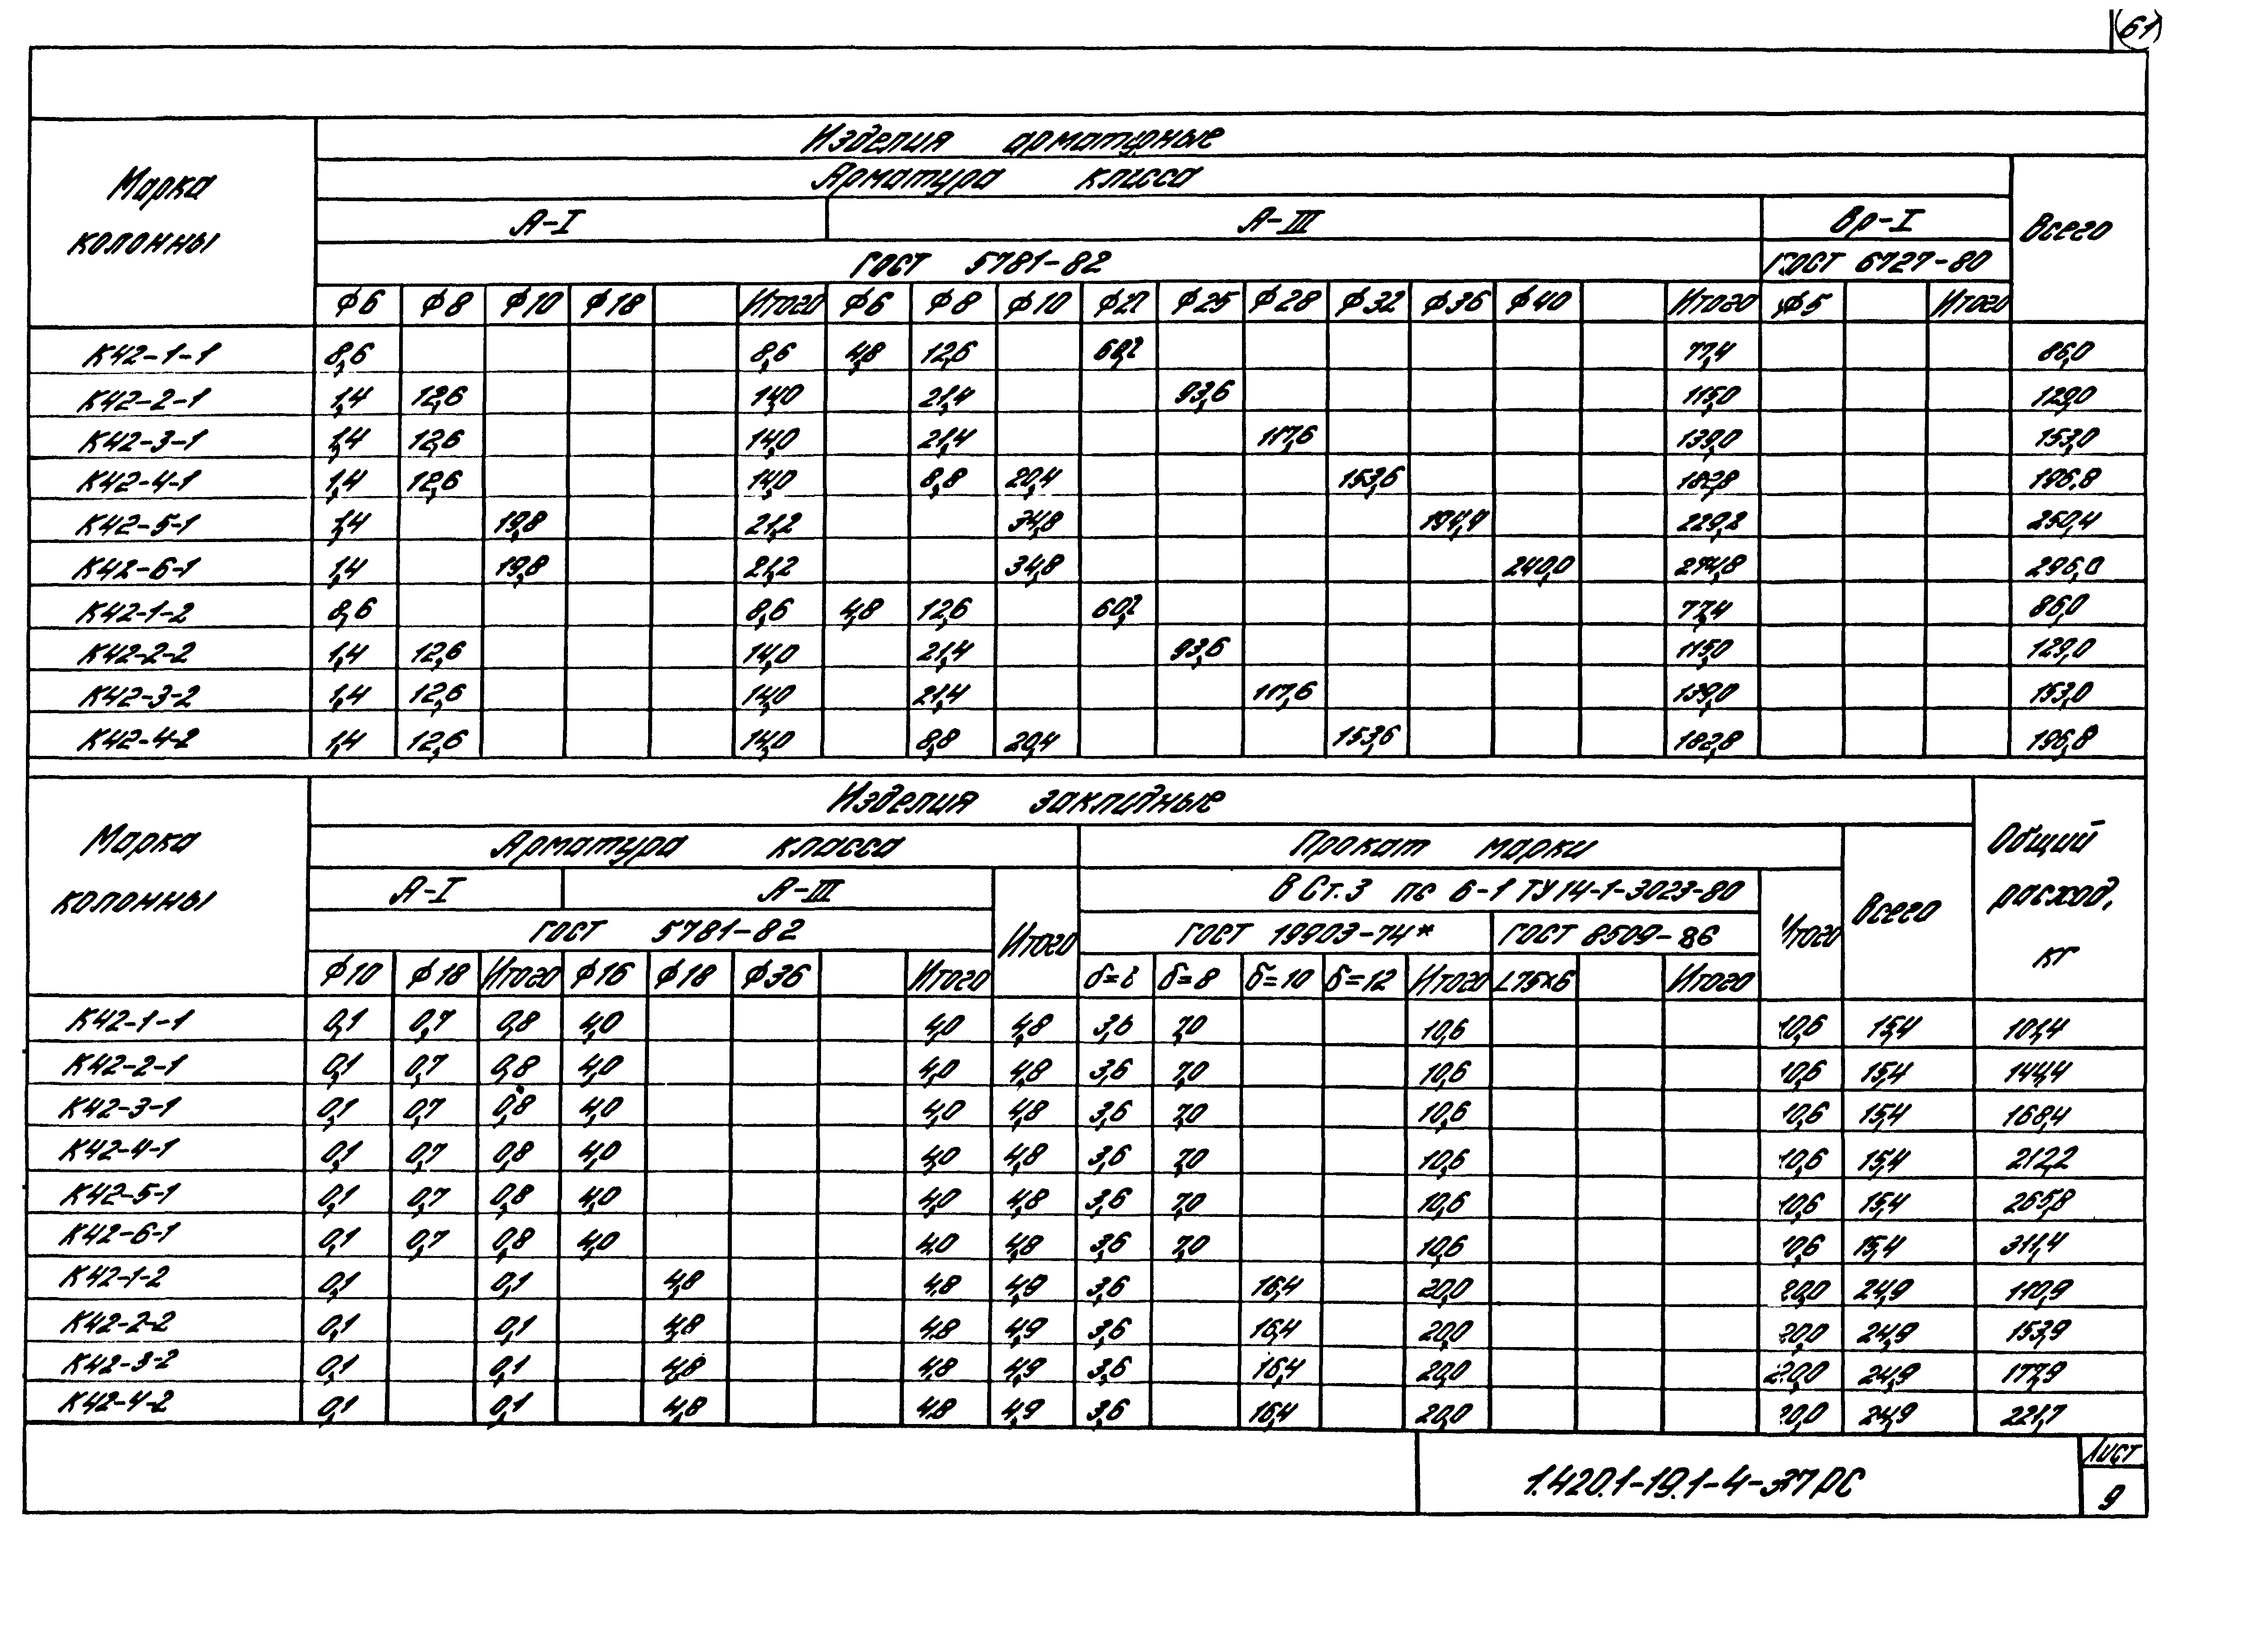 61
Изделия арматурные
Марка колонны
Арматура класса
Всего
А-I А-III Вр-I
ГОСТ 5781-82 ГОСТ 6727-80
ф6 ф8 ф10 ф18 Итого ф6 ф8 ф10 ф22 ф25 ф28 ф32 ф36 ф40 Итого ф5 Итого
К42-1-1 8,6 8,6 4,8 12,6 60,2 77,4 86,0
К42-2-1 1,4 12,6 14,0 21,4 93,6 115,0 129,0
К42-3-1 1,4 12,6 14,0 21,4 117,6 139,0 153,0
К42-4-1 1,4 12,6 14,0 8,8 20,4 153,6 182,8 196,8
К42-5-1 1,4 19,8 21,2 34,8 194,4 229,2 250,4
К42-6-1 1,4 19,8 21,2 34,8 240,0 274,8 296,0
К42-1-2 8,6 8,6 4,8 12,6 60,2 77,4 86,0
К42-2-2 1,4 12,6 14,0 21,4 93,6 115,0 129,0
К42-3-2 1,4 12,6 14,0 21,4 117,6 139,0 153,0
К42-4-2 1,4 12,6 14,0 8,8 20,4 153,6 182,8 196,8
Изделия закладные
Марка колонны
Общий расход, кг
Арматура класса Прокат марки
Всего
А-I А-III Итого В Ст.3 пс 6-1 ТУ 14-1-3023-80 Итого
ГОСТ 5781-82 ГОСТ 19903-74* ГОСТ 8509-86
ф10 ф18 Итого ф16 ф18 ф36 Итого δ=6 δ=8 δ=10 δ=12 Итого L75×6 Итого
К42-1-1 0,1 0,7 0,8 4,0 4,0 4,8 3,6 7,0 10,6 10,6 15,4 101,4
К42-2-1 0,1 0,7 0,8 4,0 4,0 4,8 3,6 7,0 10,6 10,6 15,4 144,4
К42-3-1 0,1 0,7 0,8 4,0 4,0 4,8 3,6 7,0 10,6 10,6 15,4 168,4
К42-4-1 0,1 0,7 0,8 4,0 4,0 4,8 3,6 7,0 10,6 10,6 15,4 212,2
К42-5-1 0,1 0,7 0,8 4,0 4,0 4,8 3,6 7,0 10,6 10,6 15,4 265,8
К42-6-1 0,1 0,7 0,8 4,0 4,0 4,8 3,6 7,0 10,6 10,6 15,4 311,4
К42-1-2 0,1 0,1 4,8 4,8 4,9 3,6 16,4 20,0 20,0 24,9 110,9
К42-2-2 0,1 0,1 4,8 4,8 4,9 3,6 16,4 20,0 20,0 24,9 153,9
К42-3-2 0,1 0,1 4,8 4,8 4,9 3,6 16,4 20,0 20,0 24,9 177,9
К42-4-2 0,1 0,1 4,8 4,8 4,9 3,6 16,4 20,0 20,0 24,9 221,7
1.420.1-19.1-4-37 РС
Лист
9